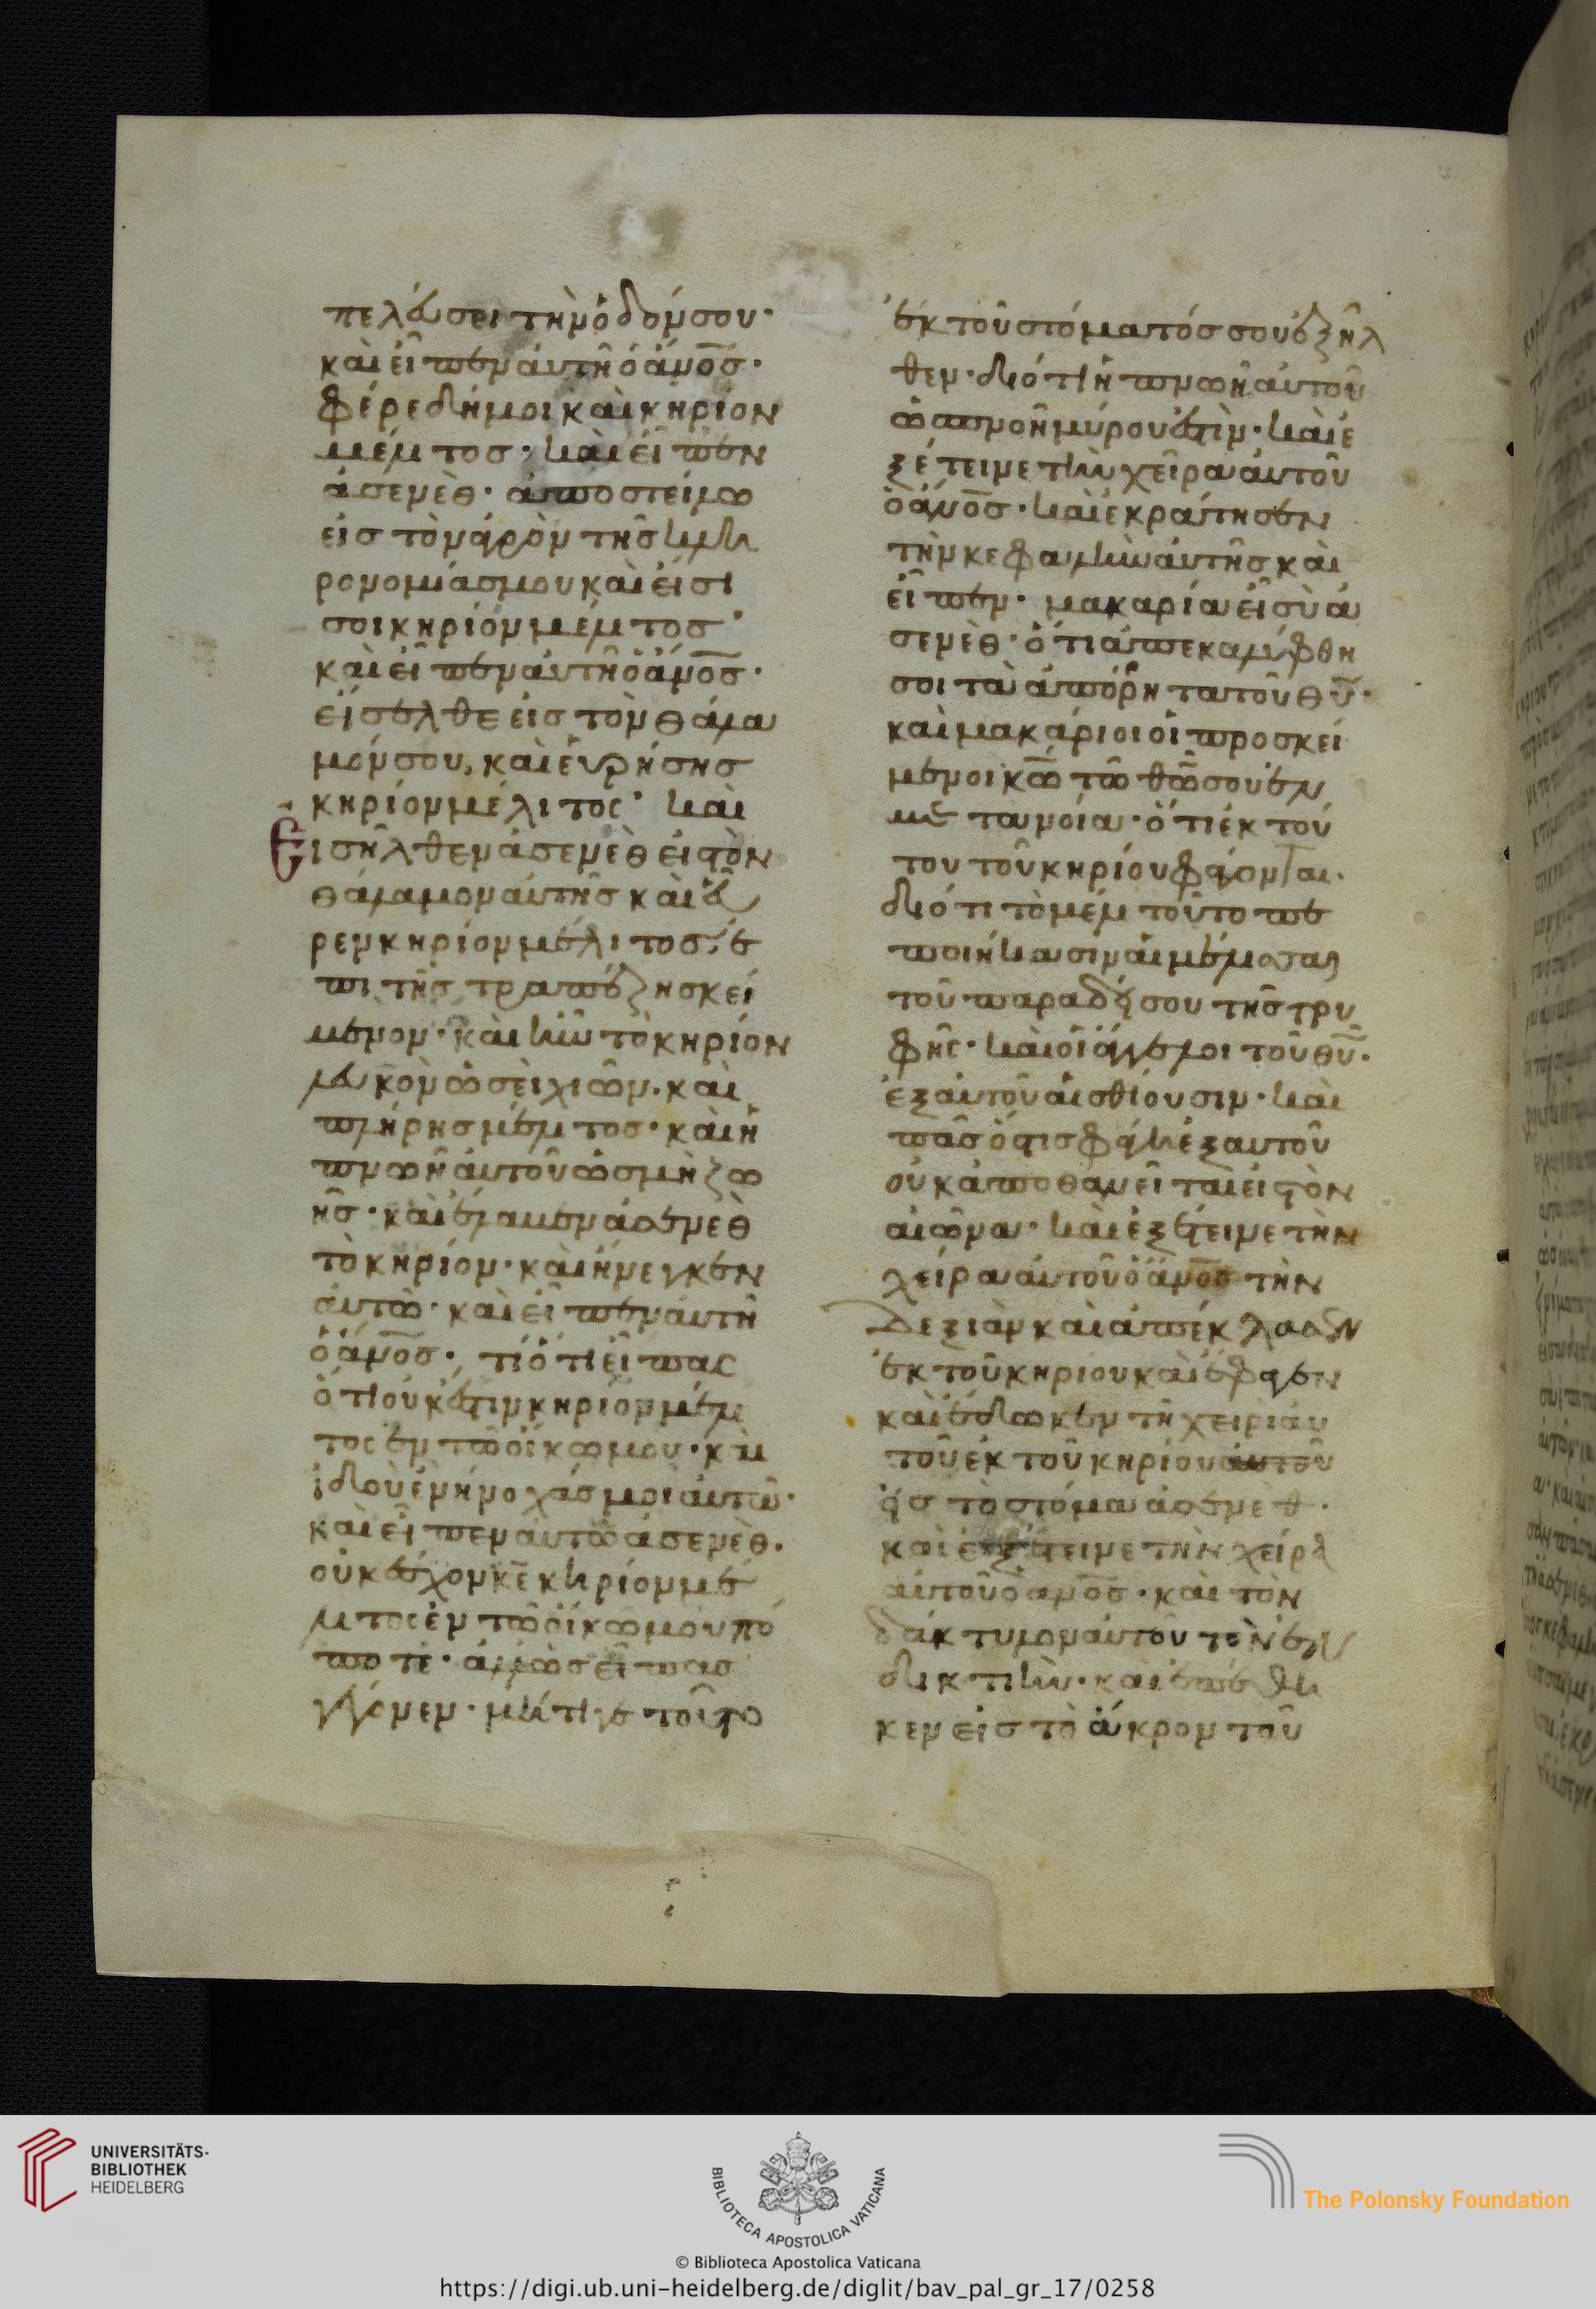 πελάσει τὴν ὁδόν σου·
καὶ εἶπεν αὐτῆ ὁ ἄνο̅σ·
φέρε δή μοι καὶ κηρίον
μέλιτος· καὶ εἶπεν
ἀσενέθ· ἀποστείλω
εἰς τὸν ἀγρὸν τῆς κλη
ρονομίας μου καὶ εἰσι
σοι κηρίον μέλιτος·
καὶ εἶπεν αὐτῆ ὁ ἄνο̅σ·
εἴσελθε εἰς τὸν θάλα
μόν σου, καὶ εὑρήσης
κηρίον μέλιτος· καὶ
Εἰσῆλθεν ἀσενέθ εἰς τὸν
θάλαμον αὐτῆς καὶ εὗ
ρεν κηρίον μέλιτος· ἐ
πι τῆς τραπέζης κεί
μενον· καὶ ἦν τὸ κηρίον
λευκὸν ὡσεὶ χιῶν· καὶ
πλήρης μέλιτος· καὶ ἡ
πνοὴ αὐτοῦ ὡσμὴ ζω
ῆς· καὶ ἔλαβεν ἀσενὲθ
τὸ κηρίον· καὶ ἤνεγκεν
αὐτῶ· καὶ εἶπεν αὐτῆ
ὁ ἄνο̅σ· τί ὅτι εἶπας
ὅτι οὐκ ἔστιν κηρίον μέλι
τος ἐν τῶ οἴκω μου· καὶ
ἰδοὺ ἐνήνοχάς μοι αὐτῶ·
καὶ εἶπεν αὐτῶ ἀσενὲθ·
οὐκ εἶχον κε̅ κηρίον μέ
λιτος ἐν τῶ οἴκω μου πό
ποτε· ἀλλ' ὡς εἶπας
γέγονεν· μήτι γε τοῦτο
ἐκ τοῦ στόματός σου ἐξῆλ
θεν· διότι ἡ πνοὴ αὐτοῦ
ὡς πνοὴ μύρου ἐστίν· καὶ ἐ
ξέτεινε τὴν χεῖρα αὐτοῦ
ὁ ἄνο̅σ· καὶ ἐκράτησεν
τὴν κεφαλὴν αὐτῆς καὶ
εἶπεν· μακαρία εἶ σὺ ἀ
σενὲθ· ὅτι ἀπεκαλύφθη
σοι τὰ ἀπόρρητα τοῦ θυ̅·
καὶ μακάριοι οἱ προσκεί
μενοι κω̅ τῶ θω̅ σου ἐν
μετανοία· ὅτι ἐκ τού
του τοῦ κηρίου φάγονται·
διότι τὸ μέλι τοῦτο πε
ποιήκασιν αἱ μέλισσαι
τοῦ παραδείσου τῆς τρυ
φῆς· καὶ οἱ ἄγγελοι τοῦ θυ̅·
ἐξ αὐτοῦ ἐσθίουσιν· καὶ
πᾶς ὅστις φάγει ἐξ αὐτοῦ
οὐκ ἀποθανεῖται εἰς τὸν
αἰῶνα· καὶ ἐξέτεινε τὴν
χεῖρα αὐτοῦ ὁ ἄνο̅σ τὴν
δεξιὰν καὶ ἀπέκλασεν
ἐκ τοῦ κηρίου καὶ ἔφαγεν
καὶ ἔδωκεν τῆ χειρὶ αὐ
τοῦ ἐκ τοῦ κηρίου αὐτοῦ
εἰς τὸ στόμα ἀσενὲθ·
καὶ ἐξέτεινε τὴν χεῖρα
αὐτοῦ ὁ ἄνο̅σ· καὶ τὸν
δάκτυλον αὐτοῦ τὸν ἐν
δικτιὴν· καὶ ἐπέθη
κεν εἰς τὸ ἄκρον τοῦ
UNIVERSITÄTS-
BIBLIOTHEK
HEIDELBERG
BIBLIOTECA APOSTOLICA VATICANA
The Polonsky Foundation
© Biblioteca Apostolica Vaticana
https://digi.ub.uni-heidelberg.de/diglit/bav_pal_gr_17/0258